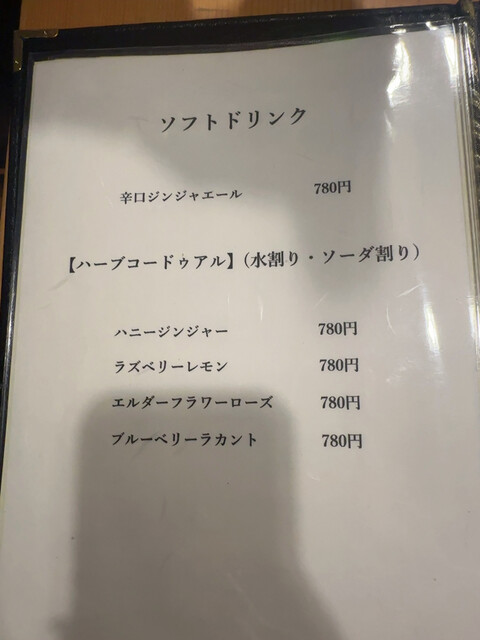 ソフトドリンク
辛口ジンジャエール 780円
【ハーブコードゥアル】(水割り・ソーダ割り)
ハニージンジャー 780円
ラズベリーレモン 780円
エルダーフラワーローズ 780円
ブルーベリーラカント 780円